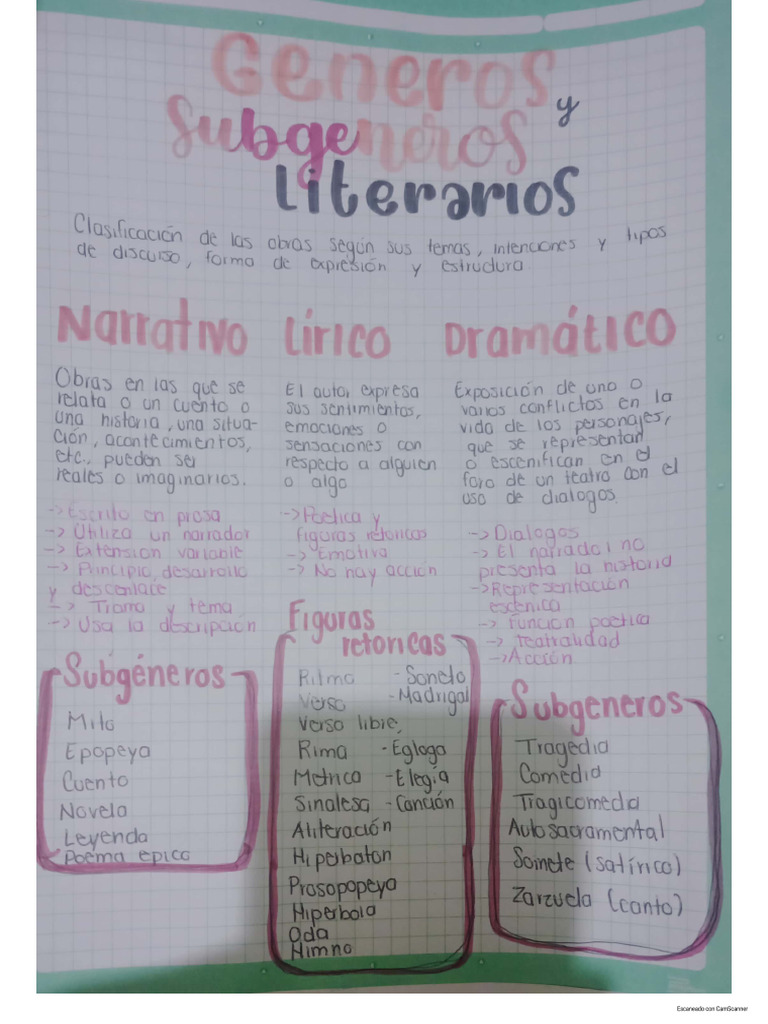 Generos
y
Subgeneros
Literarios
Clasificación de las obras según sus temas, intenciones y tipos
de discurso, forma de expresión y estructura
Narrativo
Obras en las que se
relata o un cuento o
una historia, una situa-
ción, acontecimientos,
etc., pueden ser
reales o imaginarios.
-> Escrito en prosa
-> Utiliza un narrador
-> Extension variable
-> Principio, desarrollo
y descenlace
-> Trama y tema
-> Usa la descripción
Subgéneros
Mito
Epopeya
Cuento
Novela
Leyenda
Poema epico
Lírico
El autor expresa
sus sentimientos,
emociones o
sensaciones con
respecto a alguien
o algo
-> Poetica y
figuras retoricas
-> Emotiva
-> No hay acción
Figuras
retoricas
Ritmo - Soneto
Verso - Madrigal
Verso libre,
Rima - Egloga
Metrica - Elegía
Sinalesa - Canción
Aliteración
Hiperbaton
Prosopopeya
Hiperbola
Oda
Himno
Dramático
Exposición de uno o
varios conflictos en la
vida de los personajes,
que se representan
o escenifican en el
foro de un teatro con el
uso de dialogos.
-> Dialogos
-> El narrador no
presenta la historia
-> Representación
escénica
-> Función poetica
-> Teatralidad
-> Acción
Subgeneros
Tragedia
Comedia
Tragicomedia
Auto sacramental
Sainete (satírico)
Zarzuela (canto)
Escaneado con CamScanner